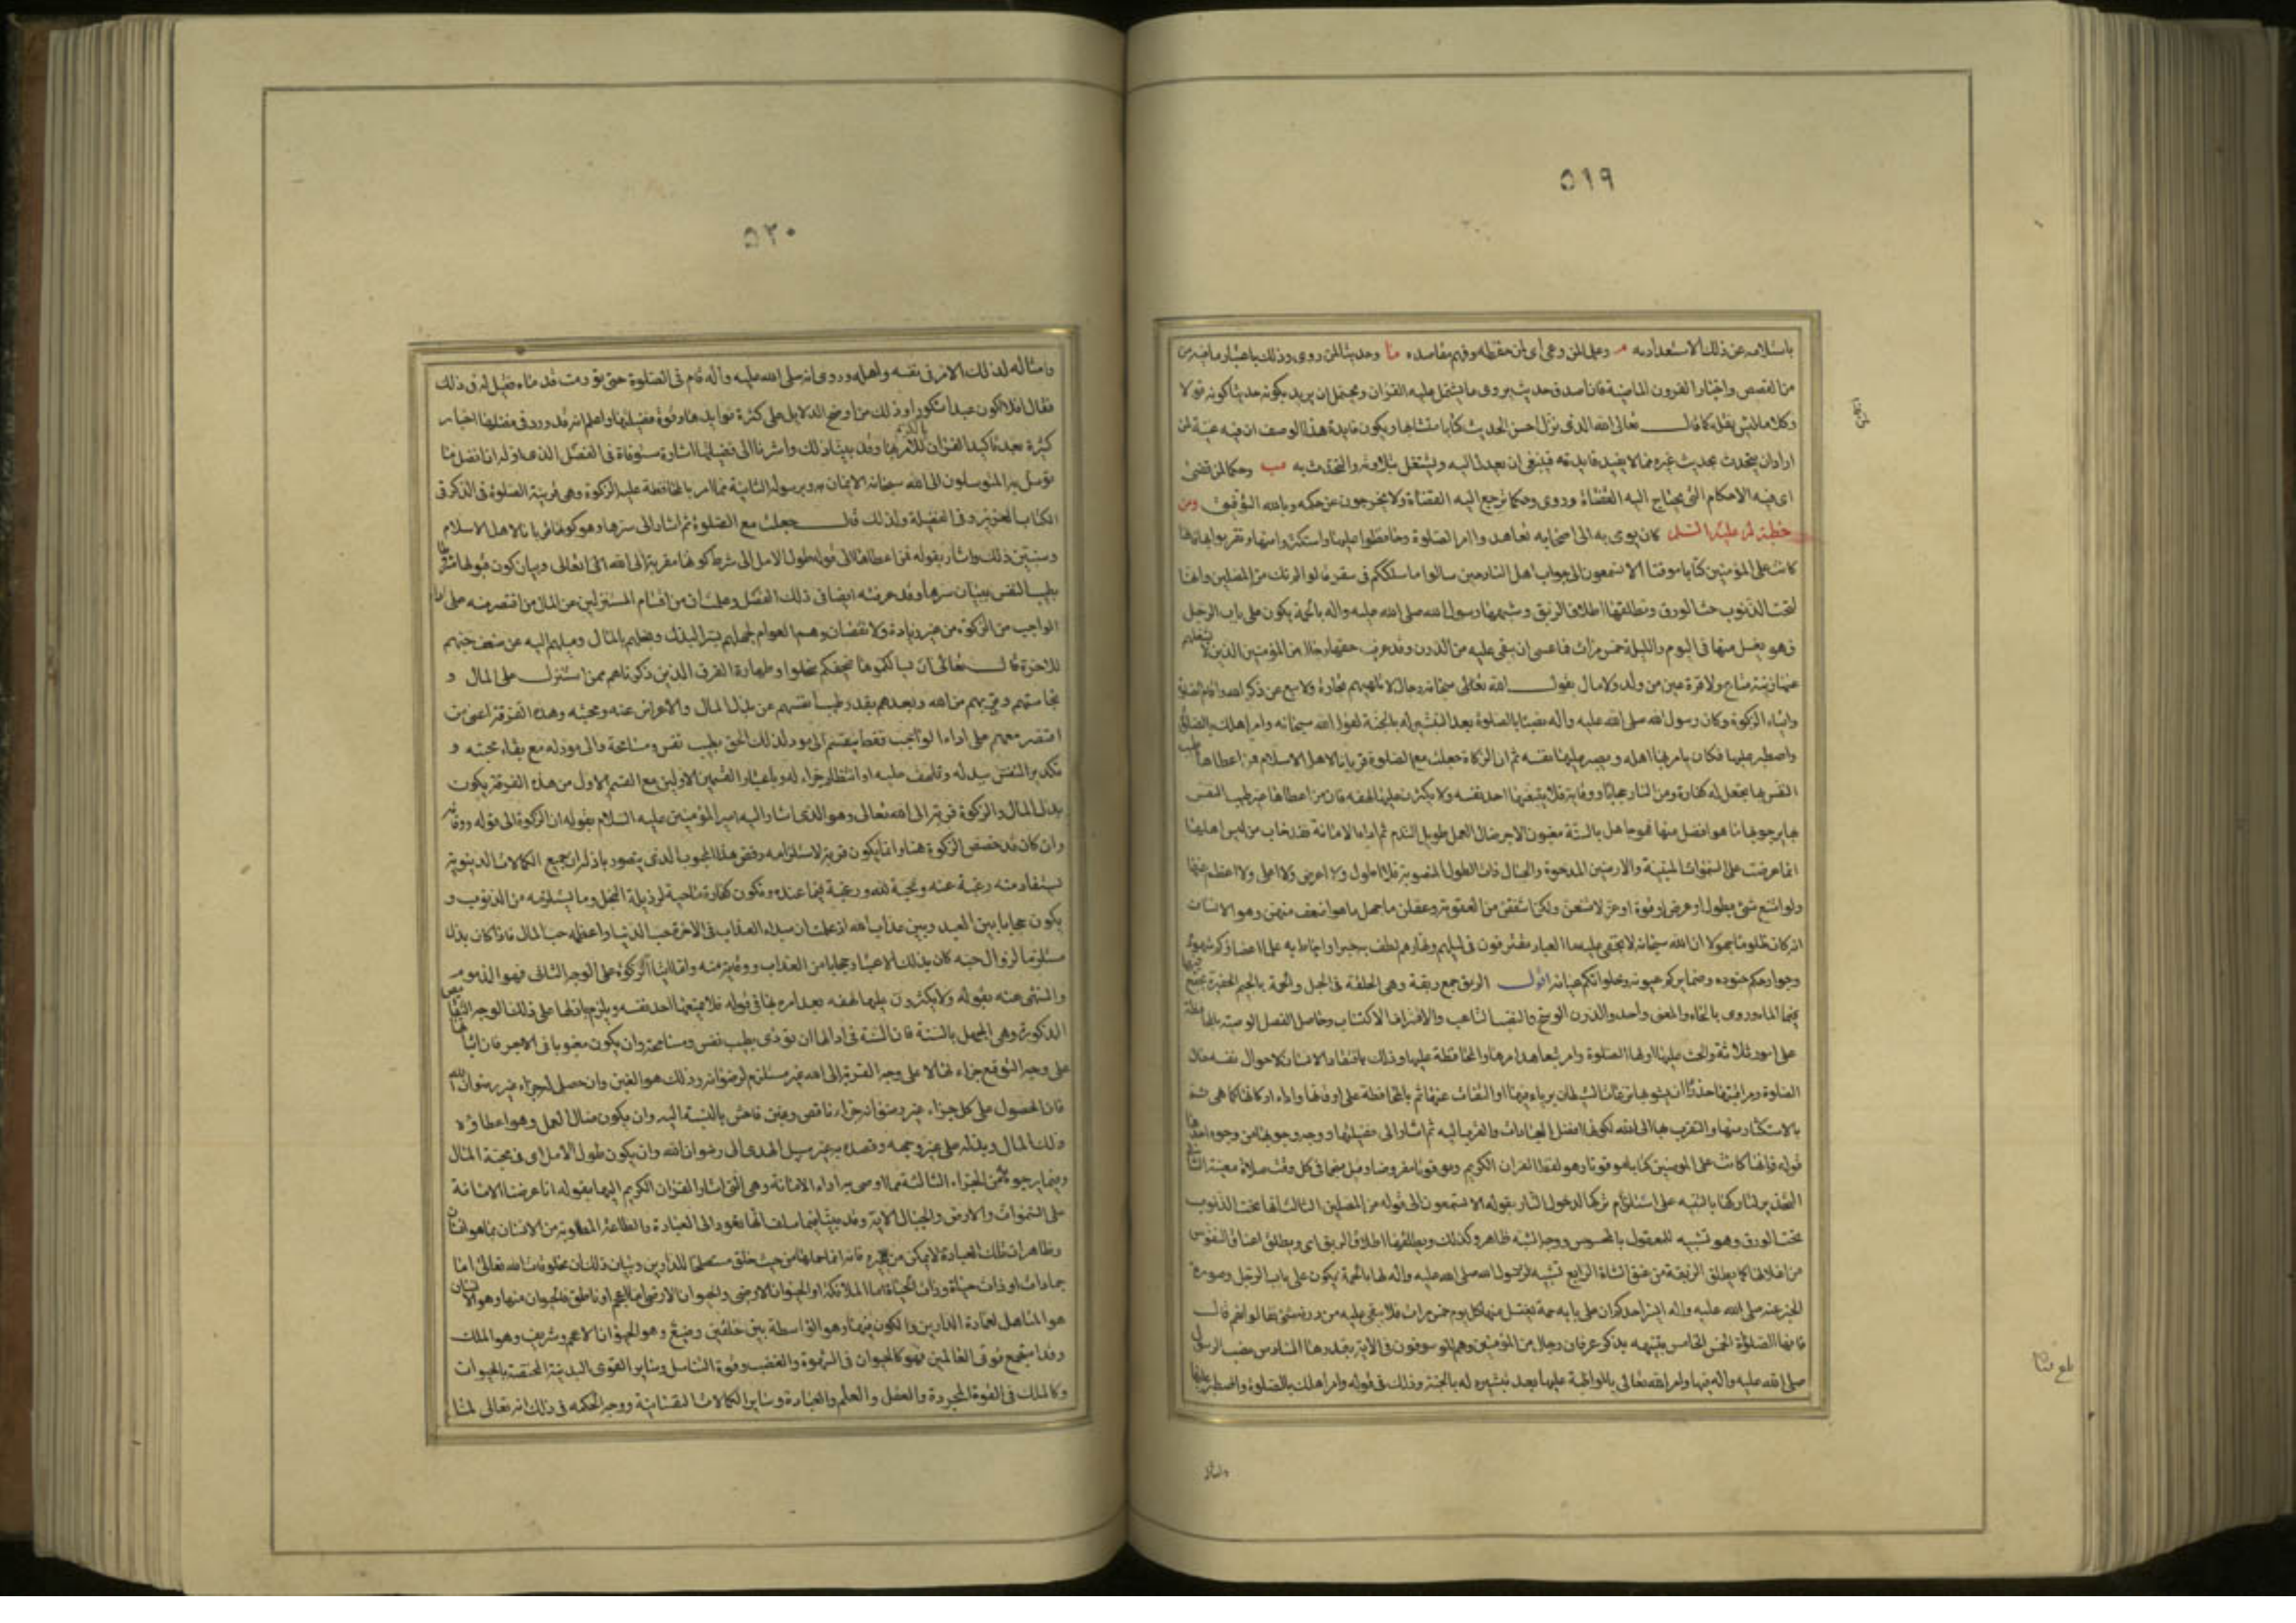 ٥١٩
باستلامه عن ذلك الاستعداد به مر وعلم لمن وعى اى لمن حفظه وفهم مقاصده منا وحديثا لمن روى وذلك باعتبار ما فيه من
من القصص واخبار القرون الماضية فان اصدق حديث يروى ما اشتمل عليه القران ويحتمل ان يريد بكونه حديثا كونه قولا
وكلاما ليس بقله كما قال تعالى الله الذى نزل احسن الحديث كتابا متشابها ويكون فايدة هذا الوصف ان فيه غنية لمن
اراد ان يتحدث بحديث غيره مما لا يفيد فايدته فينبغى ان يعدل اليه ويشتغل بتلاوته والتحدث به مب وحكما لمن قضى
اى فيه الاحكام التى يحتاج اليه القضاة وروى وحكما ترجع اليه القضاة ولا يخرجون عن حكمه وبالله التوفيق ومن
خطبة له عليه السلم كان يوصى به الى اصحابه تعاهدوا امر الصلوة وحافظوا عليها واستكثروا منها وتقربوا بها فانها
كانت على المؤمنين كتابا موقتا الا تسمعون الى جواب اهل النار حين سالوا ما سلككم فى سقر قالوا لم نك من المصلين وانها
لتحت الذنوب حت الورق وتطلقها اطلاق الربق وشبهها رسول الله صلى الله عليه واله بالحمة يكون على باب الرجل
فهو يغسل منها فى اليوم والليلة خمس مرات فما عسى ان يبقى عليه من الدرن وقد عرف حقها رجال من المؤمنين الذين لا تشغلهم
عنها زينة متاع ولا قرة عين من ولد ولا مال يقول الله تعالى سبحانه رجال لا تلهيهم تجارة ولا بيع عن ذكر الله واقام الصلوة
وايتاء الزكوة وكان رسول الله صلى الله عليه واله نصبا بالصلوة بعد التبشير له بالجنة لقول الله سبحانه وامر اهلك بالصلوة
واصطبر عليها فكان يامر بها اهله ويصبر عليها نفسه ثم ان الزكاة جعلت مع الصلوة قربانا لاهل الاسلام فمن اعطاها طيب
النفس بها يجعل له كفارة ومن النار حجابا ووقاية فلا يتبعنها احد نفسه ولا يكثرن عليها لهفه فان من اعطاها غير طيب النفس
بها يرجو بها ما هو افضل منها فهو جاهل بالسنة مغبون الاجر ضال العمل طويل الندم ثم اداء الامانة فقد خاب من ليس اهلها
انها عرضت على السموات المبنية والارضين المدحوة والجبال ذات الطول المنصوبة فلا اطول ولا اعرض ولا اعلى ولا اعظم منها
ولو امتنع شئ بطول او عرض او قوة او عز لامتنعن ولكن اشفقن من العقوبة وعقلن ما جهل ما هو اضعف منهن وهو الانسان
انه كان ظلوما جهولا ان الله سبحانه لا يخفى عليه ما العباد مقترفون فى ليلهم ونهارهم لطف به خبرا واحاط به علما اعضاؤكم شهوده
وجوارحكم جنوده وضمايركم عيونه وخلواتكم عيانه اقول الربق جمع ربقة وهى الحلقة فى الحبل والحمة بالجيم الحفيرة يجتمع فيها
فيها الماء وروى بالحاء والمعنى واحد والدرن الوسخ والنصب التاعب والاقتراف الاكتساب وحاصل الفصل الوصية بالمحافظة
على امور ثلاثة والحث عليها اولها الصلوة وامر بتعاهد امرها والمحافظة عليها وذلك بافتقاد الانسان لاحوال نفسه حال
الصلوة ومراقبتها حذرا ان يشوبها نزغات الشيطان برياء فيها او التفات عنها ثم بالمحافظة على اوقاتها واداء اركانها كما هى ثم
بالاستكثار منها والتقرب بها الى الله لكونها افضل العبادات والقرب اليه ثم اشار الى فضيلتها ووجه وجوبها من وجوه احدها
قوله فانها كانت على المومنين كتابا موقوتا وهو لفظ القران الكريم وموقوتا مفروضا وقيل منجما فى كل وقت صلاة معينة الثانى
التحذير لتاركها بالتنبيه على استلزام تركها لدخول النار بقوله الا تسمعون الى قوله من المصلين الثالث انها تحت الذنوب
حت الورق وهو تشبيه للمعقول بالمحسوس ووجه الشبه ظاهر وكذلك ويطلقها اطلاق الربق اى ويطلق اعناق النفوس
من اغلالها كما يطلق الربقة من عنق الشاة الرابع تشبيه الرسول الله صلى الله عليه واله لها بالحمة يكون على باب الرجل وصورة
الخبر عنه صلى الله عليه واله ايسر احدكم ان على بابه حمة يغتسل منها كل يوم خمس مرات فلا يبقى عليه من درنه شئ فقالوا نعم قال
فانها الصلوات الخمس الخامس بتنبيهه بذكر عرفان رجال من المؤمنين وهم الموصوفون فى الاية بقدرها السادس نصب الرسول
صلى الله عليه واله فيها وامر الله تعالى بالمواظبة عليها بعد تبشيره له بالجنة وذلك فى قوله وامر اهلك بالصلوة واصطبر عليها
٥٢٠
وامتثاله لذلك الامر فى نفسه واهله وروى انه صلى الله عليه واله قام فى الصلوة حتى تورمت قدماه فقيل له فى ذلك
فقال افلا اكون عبدا شكورا وذلك من اوضح الدلايل على كثرة فوايدها وقوة فضيلتها واعلم انه قد ورد فى فضلها اخبار
كثيرة بعد تاكيد القران الكريم للامر بها وقد بيناذلك واشرنا الى فضيلتها اشارة مستوفاة فى الفصل الذى اوله ان افضل ما
توسل به المتوسلون الى الله سبحانه الايمان به وبرسوله الثانية مما امر بالمحافظة عليه الزكوة وهى قرينة الصلوة فى الذكر فى
الكتاب العزيز وفى الفضيلة ولذلك قال جعلت مع الصلوة ثم اشار الى سرها وهو كونها قربانا لاهل الاسلام
وسنبين ذلك واشار بقوله فمن اعطاها الى قوله طول الامل الى شرط كونها مقربة الى الله تعالى وبيان كون قبولها مشروطا
بطيب النفس ببيان سرها وقد عرفته ايضا فى ذلك الفصل وعلمت ان من اقسام المستنزلين عن المال من اقتصر منه على اداء
الواجب من الزكوة من غير زيادة ولا نقصان وهم العوام لجهلهم بسر البذل وبخلهم بالمال وميلهم اليه من ضعف حبهم
للاخرة قال تعالى ان يسالكموها فيحفكم تبخلوا وطهارة الفرق الذين ذكرناهم ممن استنزل على المال و
نجاستهم وقربهم من الله وبعدهم بقدر طيب انفسهم عن بذل المال والاعراض عنه ومحبته وهذه الفرقة اعنى من
اقتصر منهم على اداء الواجب فقط ينقسم الى مود لذلك الحق بطيب نفس ومسامحة والى مود له مع بقاء محبته و
تكدير النفس ببذله وتلهف عليه او انتظار جزاء له وباعتبار القسمين الاولين مع القسم الاول من هذه الفرقة يكون
بذل المال والزكوة قربة الى الله تعالى وهو الذى اشار اليه امير المؤمنين عليه السلام بقوله ان الزكوة الى قوله ووقاية
وان كان قد خصص الزكوة هنا وانما يكون قربة لاستلزامه رفض هذا المحبوب الذى يتصور باذله ان جميع الكمالات الدنيوية
يستفاد منه رغبة عنه ومحبة لله ورغبة فيما عنده وتكون كفارة ماحية لرذيلة البخل وما يستلزمه من الذنوب و
يكون حجابا بين العبد وبين عذاب الله اذ علمت ان مبداء العذاب فى الاخرة حب الدنيا واعظمه حب المال فاذا كان بذل
مستلزما لزوال حبه كان بذلك الاعتبار حجابا من العذاب ووقاية منه واما ايتاء الزكوة على الوجه الثانى فهو المذموم
والمنهى عنه بقوله ولا يكثرون عليها لهفه بعد امره بها فى قوله فلا يتبعنها احد نفسه ويلزم باذلها على ذلك الوجه النقايص
المذكورة وهى الجهل بالسنة فان السنة فى ادائها ان تودى بطيب نفس ومسامحة وان يكون مغبونا فى الاجر فان ايتائها
على وجه التوقع جزاء لها لا على وجه القربة الى الله غير مستلزم لرضوانه وذلك هو الغبن وان حصل له جزاء غير رضوان الله
فان الحصول على كل جزاء غير رضوانه جزاء ناقص وغبن فاحش بالنسبة اليه وان يكون ضال العمل وهو اعطاؤه
ذلك المال وبذله على غير وجهه وقصده به غير سبيل الهدى الى رضوان الله وان يكون طول الامل اى فى محبة المال
وفيما يرجوه من الجزاء الثالثة مما اوصى به اداء الامانة وهى التى اشار القران الكريم اليها بقوله انا عرضنا الامانة
على السموات والارض والجبال الاية وقد بينا فيما سلف انها تعود الى العبادة والطاعة المطلوبة من الانسان بما هو انسان
وظاهر ان تلك العبادة لا يمكن من غيره فانه انما حملها من حيث خلق مستعدا للدارين وبيان ذلك ان مخلوقات الله تعالى اما
جمادات او ذات حياة وذات الحياة اما الملائكة او الحيوان الارضى والحيوان الارضى اما اعجم او ناطق فالحيوان منها وهو الانسان
هو المتاهل لعمارة الدارين والكون فيهما وهو الواسطة بين خلقين وضيع وهو الحيوان الاعجم وشريف وهو الملك
وقد استجمع قوى العالمين فهو كالحيوان فى الشهوة والغضب وقوة التناسل وساير القوى البدنية المختصة بالحيوان
وكالملك فى القوة المجردة والعقل والعلم والعبادة وساير الكمالات النفسانية ووجه الحكمة فى ذلك انه تعالى لما